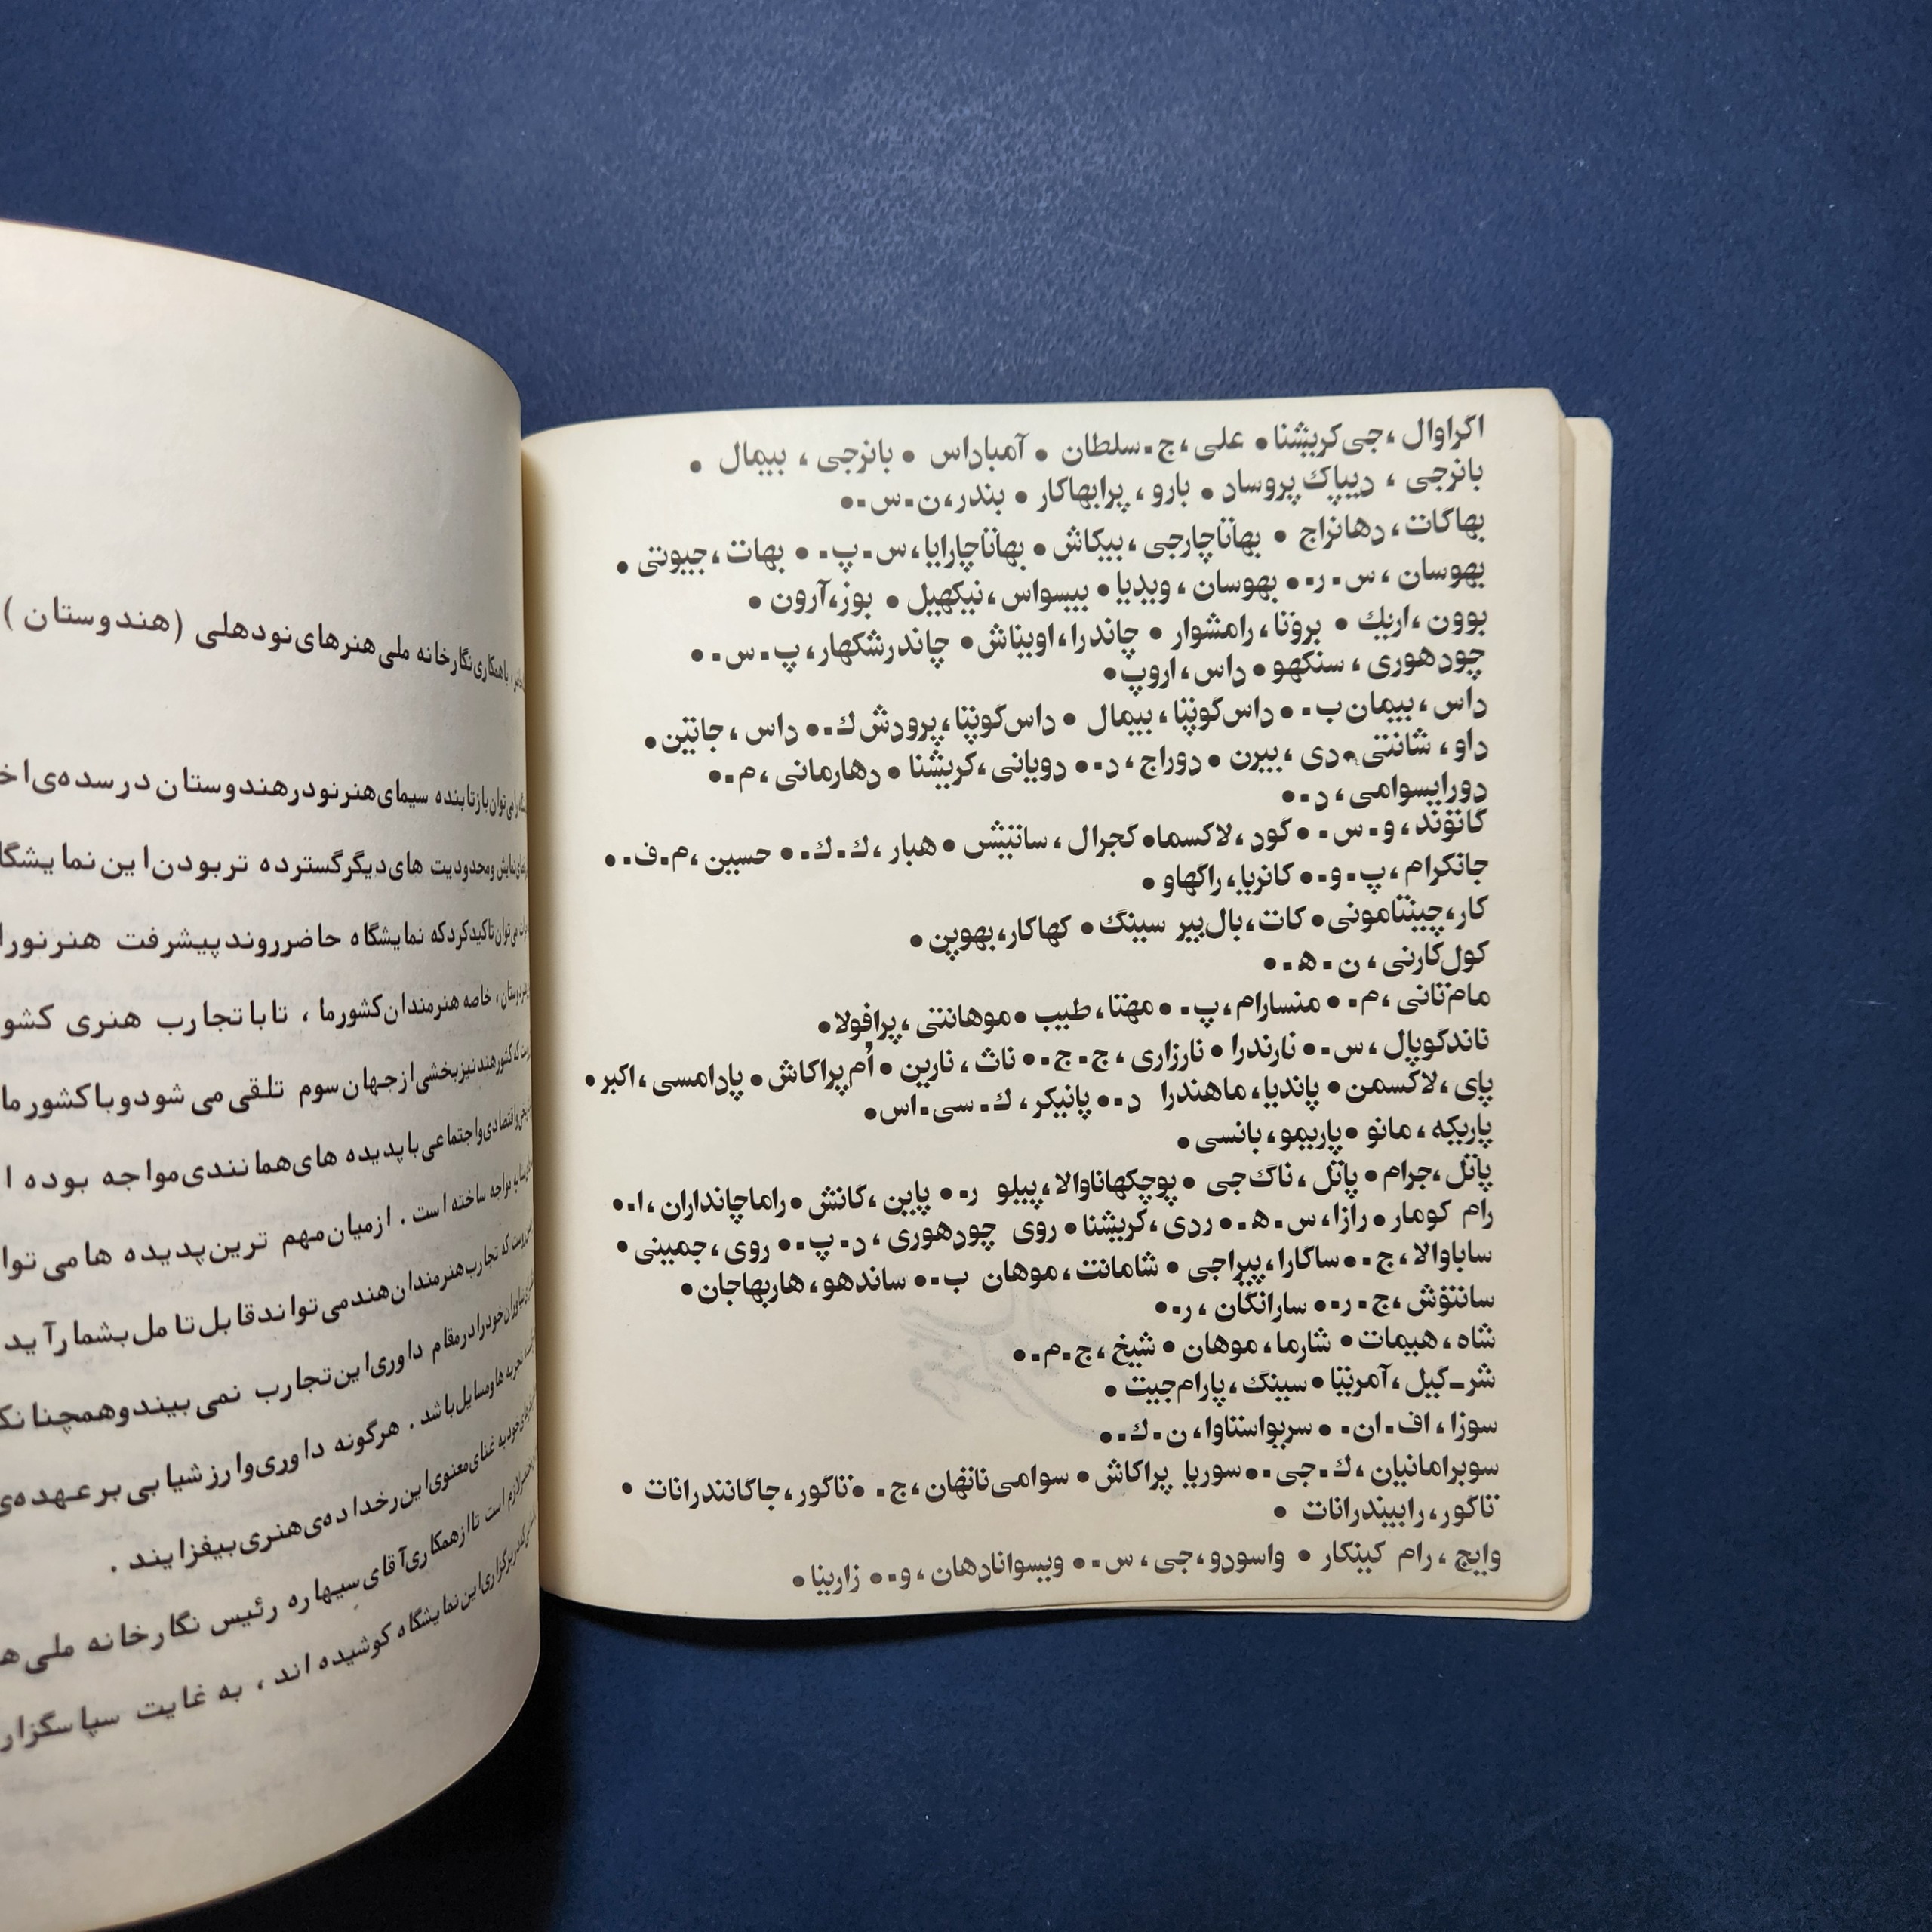 اگراوال ، جی کریشنا • علی ، ج . سلطان • آمباداس • بانرجی ، بیمال •
بانرجی ، دیپاک پروساد • بارو ، پرابهاکار • بندر ، ن . س . •
بهاگات ، دهانراج • بهاتاچارجی ، بیکاش • بهاتاچارایا ، س . پ . • بهات ، جیوتی •
بهوسان ، س . ر . • بهوسان ، ویدیا • بیسواس ، نیکهیل • بوز ، آرون •
بوون ، اریك • بروتا ، رامشوار • چاندرا ، اویناش • چاندرشکهار ، پ . س . •
چودهوری ، سنکهو • داس ، اروپ •
داس ، بیمان ب . • داس گوپتا ، بیمال • داس گوپتا ، پرودش ك . • داس ، جاتین •
داو ، شانتی • دی ، بیرن • دوراج ، د . • دویانی ، کریشنا • دهارمانی ، م . •
دورایسوامی ، د . •
گانوند ، و . س . • گود ، لاکسما • گجرال ، ساتیش • هبار ، ك . ك . • حسین ، م . ف . •
جانکرام ، پ . و . • کانریا ، راگهاو •
کار ، چینتامونی • کات ، بال بیر سینگ • کهاکار ، بهوپن •
کول کارنی ، ن . ه . •
مام تانی ، م . • منسارام ، پ . • مهتا ، طیب • موهانتی ، پرافولا •
ناندگوپال ، س . • نارندرا • نارزاری ، ج . ج . • ناث ، نارین • اُم پراکاش • پادامسی ، اکبر •
پای ، لاکسمن • پاندیا ، ماهندرا د . • پانیکر ، ك . سی . اس •
پاریکه ، مانو • پاریمو ، بانسی •
پاتل ، جرام • پاتل ، ناگ جی • پوچکهاناوالا ، پیلو ر . • پاین ، گانش • راماچانداران ، ا . •
رام کومار • رازا ، س . ه . • ردی ، کریشنا • روی چودهوری ، د . پ . • روی ، جمینی •
ساباوالا ، ج . • ساگارا ، پیراجی • شامانت ، موهان ب . • ساندهو ، هاربهاجان •
سانتوش ، ج . ر . • سارانگان ، ر . •
شاه ، هیمات • شارما ، موهان • شیخ ، ج . م . •
شر ـ گیل ، آمریتا • سینگ ، پارام جیت •
سوزا ، اف . ان . • سریواستاوا ، ن . ك . •
سوبرامانیان ، ك . جی . • سوریا پراکاش • سوامی ناتهان ، ج . • تاگور ، جاگانندرانات •
تاگور ، رابیندرانات •
وایج ، رام کینکار • واسودو ، جی ، س . • ویسوانادهان ، و . • زارینا •
با همکاری نگارخانه ملی هنرهای نو دهلی ( هندوستان )
را می توان بازتابنده سیمای هنر نو در هندوستان در سده ی
نمایش و محدودیت های دیگر گسترده تر بودن این
می توان تاکید کرد که نمایشگاه حاضر روند پیشرفت هنر نو را
خاصه هنرمندان کشور ما ، تا با تجارب هنری
که کشور هند نیز بخشی از جهان سوم تلقی می شود و با کشور ما
اقتصادی و اجتماعی با پدیده های همانندی مواجه بوده
مواجه ساخته است . از میان مهم ترین پدیده ها می
که تجارب هنرمندان هند می تواند قابل تا مل بشمار آید
خود را در مقام داوری این تجارب نمی بیند و همچنا
تجربه ها و مسایل باشد . هرگونه داوری و ارزشیا بی بر عهده ی
غنای معنوی این رخداده ی هنری بیفزایند .
لازم است تا از همکاری آقای سیهاره رئیس نگارخانه ملی
برگزاری این نمایشگاه کوشیده اند ، به غایت سپاسگزار